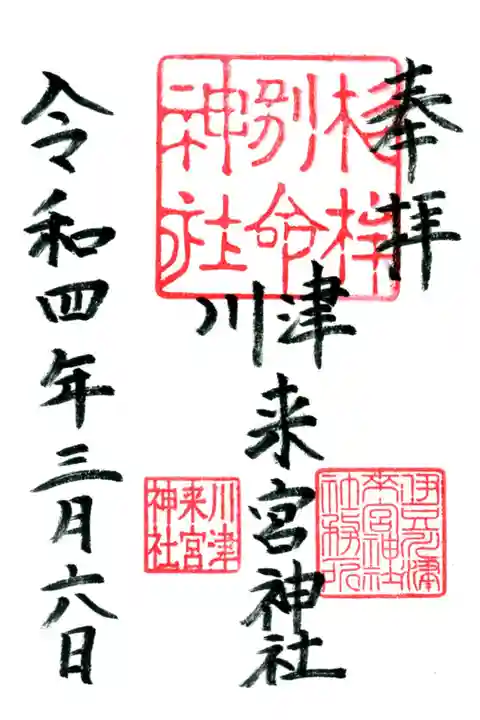 奉拝
杉桙
別命
神社
川津
来宮神社
伊豆川津
来宮神社
社務所
川津
来宮
神社
令和四年三月六日